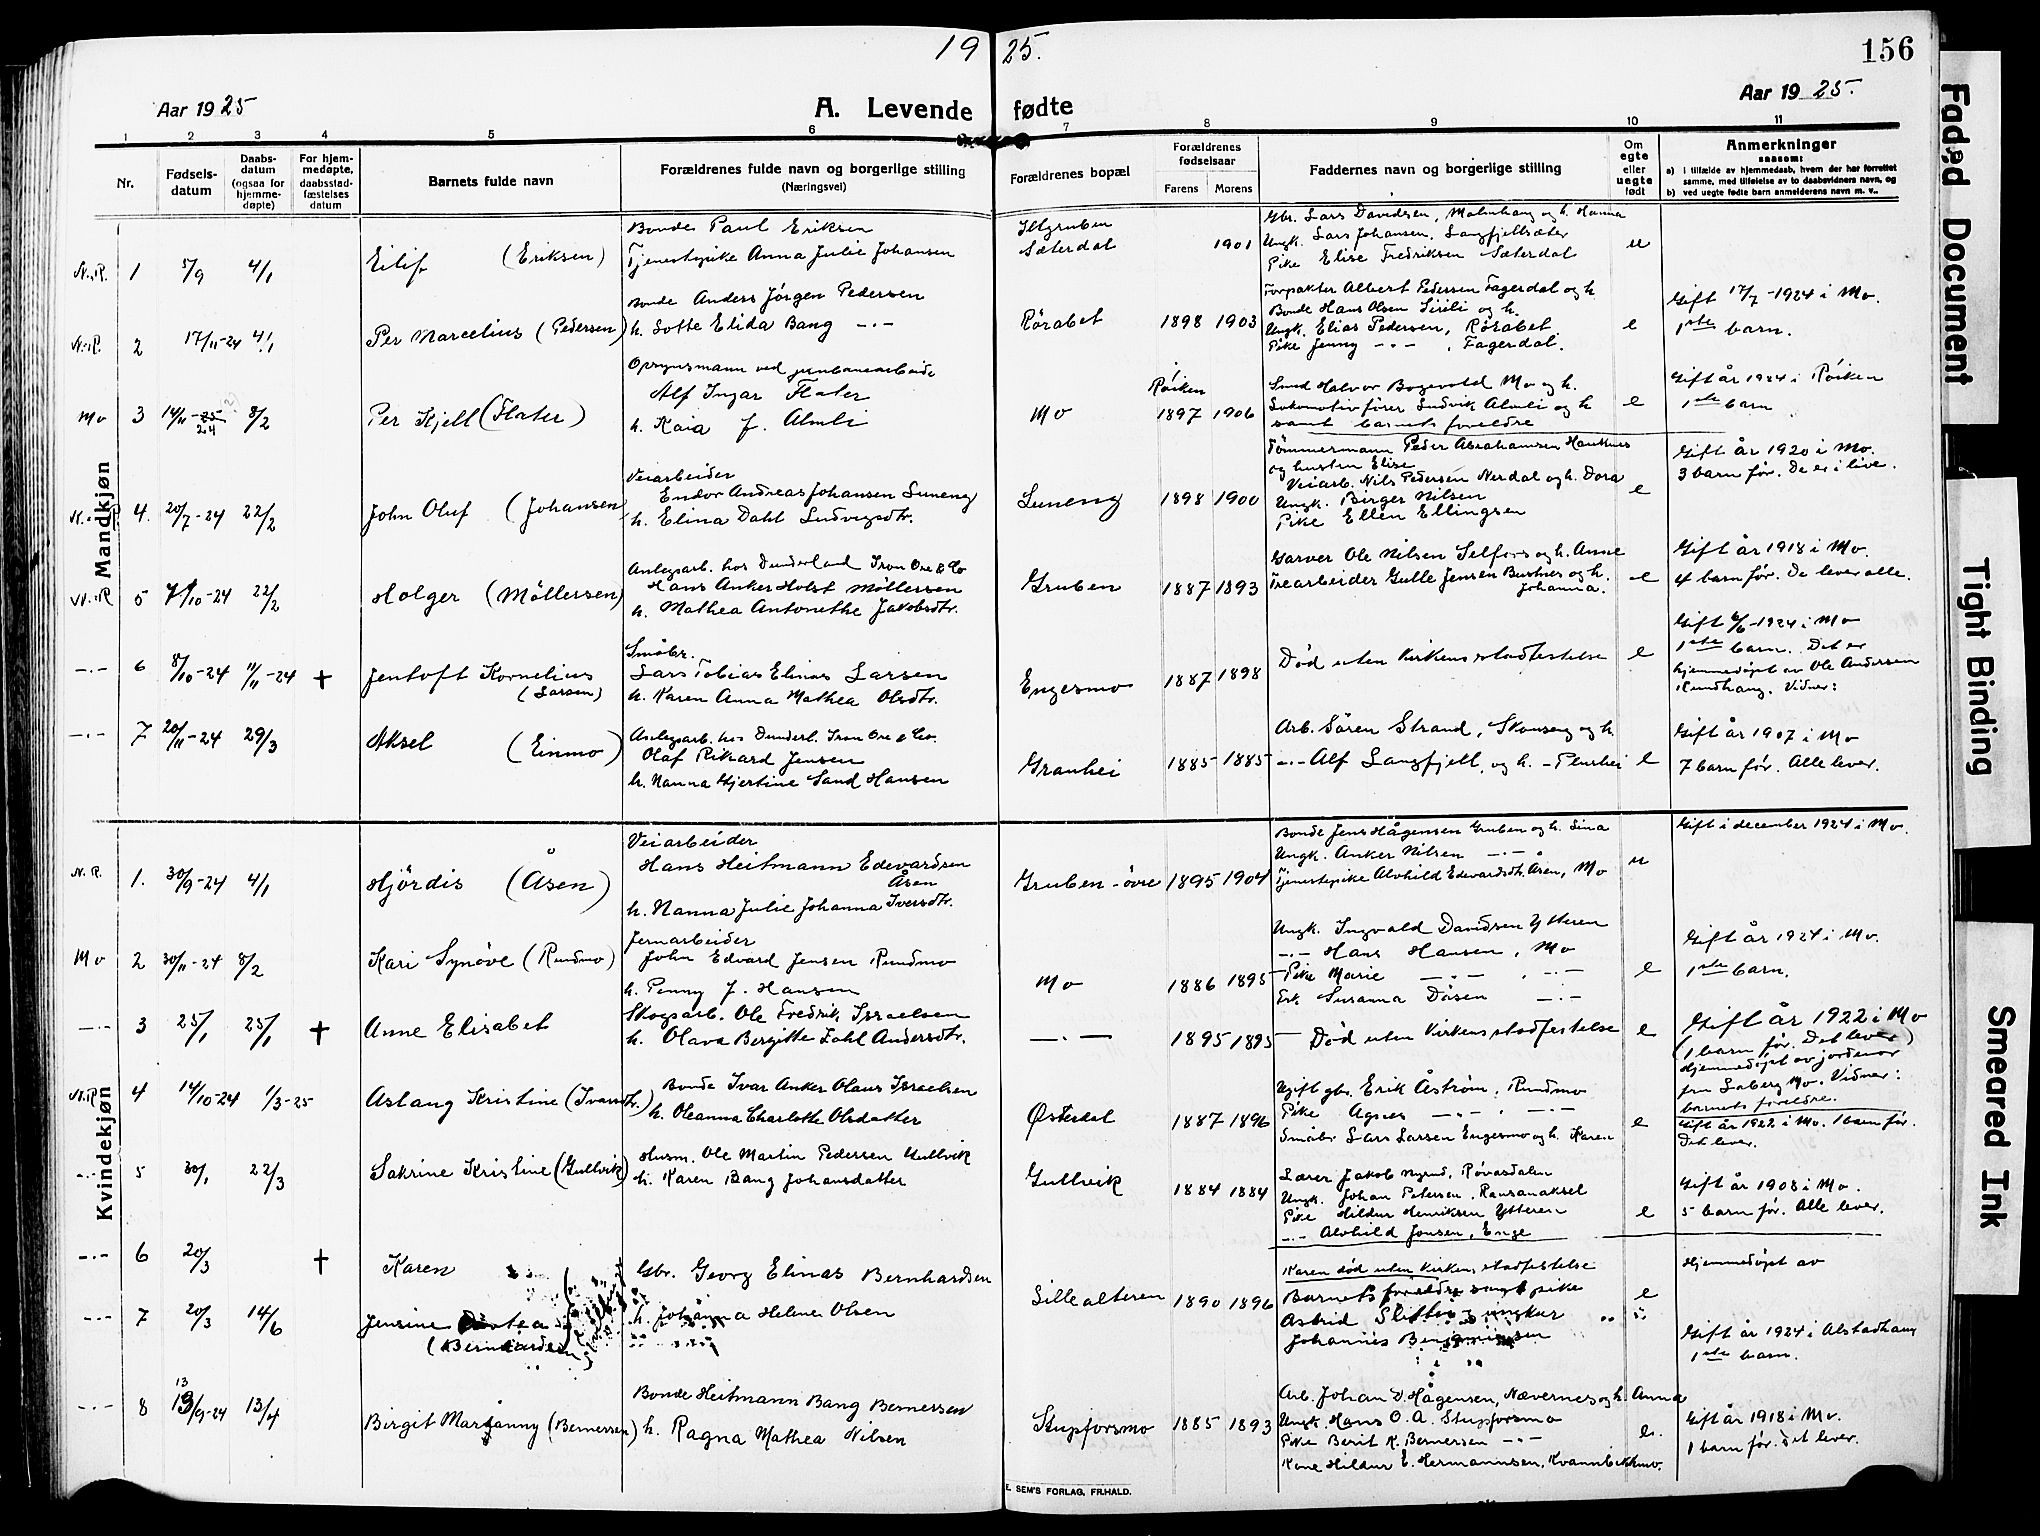 19 25.
156
Aar 1925
A. Levende fødte
Aar 1925.
1 2 3 4 5 6 7 8 9 10 11
Nr.
Fødsels-datum
Daabs-datum (ogsaa for hjemme-døpte)
For hjem-medøpte, daabsstad-fæstelses datum
Barnets fulde navn
Forældrenes fulde navn og borgerlige stilling
(Næringsvei)
Forældrenes bopæl
Forældrenes fødselsaar
Farens Morens
Faddernes navn og borgerlige stilling
Om egte eller uegte født
Anmerkninger
saasom:
a) i tilfælde av hjemmedaab, hvem der har forrettet samme, med tilføielse av to daabsvidners navn, og
b) ved uegte fødte barn anmelderens navn m. v..
Mandkjøn
N.R. 1 5/9 4/1 Eilif (Eriksen)
Bonde Paul Eriksen
Tjenestepike Anna Julie Johansen
Iltgruben
Sæterdal
1901
Gbr. Lars Davidsen, Malmhaug og h. Hanna
Ungk. Lars Johansen, Langfjellsæter
Pike Elise Fredriksen Sæterdal
u
N.R. 2 17/11-24 4/1 Per Marcelius (Pedersen)
Bonde Anders Jørgen Pedersen
h. Lotte Elida Bang -.-
Rørabet 1898 1903
Forpakter Albert Pedersen Fagerdal og h.
Bonde Hans Olsen og h.
Ungk. Elias Pedersen, Rørabet.
Pike Jenny -.-, Fagerdal.
e
Gift 17/7-1924 i Mo.
1ste barn.
Mo 3 14/11-24 8/2 Per Kjell (Flater)
Opsynsmann ved jernbanearbeide
Alf Ingar Flater
h. Kaia J. Almli
Mo
Røiken
1897 1906
Smed Halvor Bogevold Mo og h.
Lokomotivfører Ludvik Almli og h
samt barnets foreldre
e
Gift år 1924 i Røiken
1ste barn
N.R. 4. 20/7-24 22/2 John Oluf (Johansen)
Veiarbeider
Endor Andreas Johansen Luneng
h. Elina Dahl Ludvigsdtr.
Luneng 1898 1900
Tømmermann Peder Abrahamsen Hauknes
og hustru Elise
Veiarb. Nils Pedersen Nerdal og h. Dora
Ungk. Birger Nilsen
Pike Ellen Ellingsen
e
Gift år 1920 i Mo.
3 barn før. De er i live.
N.R. 5 7/10-24 22/2 Holger (Møllersen)
Anlegsarb. hos Dunderland Iron Ore & Co
Hans Anker Holst Møllersen
h. Mathea Antonethe Jakobsdtr.
Gruben 1887 1893
Garver Ole Nilsen Selfors og h. Anne
Trearbeider Gulle Jensen Bustnes og h.
Johanna.
e
Gift år 1918 i Mo.
4 barn før. De lever alle.
-.- 6 8/10-24 11/11-24 + Jentoft Kornelius
(Larsen)
Småbr.
Lars Tobias Elinas Larsen
h. Karen Anna Mathea Olsdtr.
Engesmo 1887 1898
Død uten kirkens stadfestelse
e
Gift 6/6-1924 i Mo
1ste barn. Det er
hjemmedøpt av Ole Andersen
Rundhaug. Vidner:
-.- 7 20/11-24 29/3 Aksel (Einmo)
Anlegsarb. hos Dunderl. Iron Ore & Co.
Olaf Rikard Jensen
h. Nanna Hjertine Sand Hansen
Granhei 1885 1885
Arb. Søren Strand, Skonseng og h.
-.- Alf Langfjell, og h. -
e
Gift år 1907 i Mo
7 barn før. Alle lever.
Kvindekjøn
N.R. 1. 30/9-24 4/1 Hjördis (Åsen)
Veiarbeider
Hans Heitmann Edevardsen
Åsen
h. Nanna Julie Johanna Iversdtr.
Gruben-övre 1895 1904
Bonde Jens Hågensen Gruben og h. Sina
Ungk. Anker Nilsen -.-
Tjenestepike Alvhild Edevardsdtr. Åsen, Mo
u
Gift i december 1924 i Mo.
Mo 2 30/11-24 8/2 Kari Synöve (Rundmo)
Jernarbeider
John Edvard Jensen Rundmo
h. Penny J. Hansen
Mo 1886 1895
Ungk. Ingvald Davidsen Ytteren
-.- Hans Hansen, Mo
Pike Marie -.-, -.-
Frk Susanna Dåsen -.-
e
Gift år 1924 i Mo.
1ste barn.
-.- 3 25/1 25/1 + Anne Elisabet
Skogsarb. Ole Fredrik Israelsen
h. Olava Bergitte Dahl Andersdtr.
-.- 1895 1895
Død uten kirkens stadfestelse
e
Gift år 1922 i Mo
(1 barn før. Det lever)
Hjemmedøpt av jordmor
fru Soberg Mo. Vidner:
barnets foreldre.
N.R. 4 14/10-24 1/3-25 Aslaug Kristine (Ivarsdtr.)
Bonde Ivar Anker Olaus Israelsen
h. Oleanna Charlotte Olsdatter
Østerdal 1887 1896
Ugift gbr. Erik Åström, Rundmo
Pike Agnes -.-, -.-
Småbr Lars Larsen Engesmo og h. Karen
e
Gift år 1922 i Mo. 1 barn før.
Det lever.
-.- 5 30/1 22/3 Sakrine Kristine (Gullvik)
Husm. Ole Martin Pedersen Gullvik
h. Karen Bang Johansdatter
Gullvik 1884 1884
Lærer Jakob Nyrud, Røvasdalen
Ungk. Johan Petersen, Ransanaksel
Pike Hildur Henriksen Ytteren
-.- Alvhild Jonsen, Enge
e
Gift år 1908 i Mo.
5 barn før. Alle lever.
-.- 6 20/3 + Karen
Gbr. Georg Elinas Bernhardsen
h. Johanna Heline Olsen
Lillealteren 1890 1896
Karen død uten kirkens stadfestelse
e
Hjemmedøpt av
-.- 7 20/3 14/6 Jensine
(Bernhardsen)
Barnets foreldre samt pike
Astrid ungkar
Johannes Benjaminsen
Gift år 1924 i Alstadhaug
1ste barn.
-.- 8 13/9-24 13/4 Birgit Marganny (Bernersen)
Bonde Heitmann Bang Bernersen
h. Ragna Mathea Nilsen
Stupforsmo 1885 1893
Arb. Johan D. Hågensen, Nævernes og h. Anna
Ungk. Hans O. A. Stupforsmo
Pike Berit K. Bernersen -.-
Kone Hildur E. Hermannsen, Kvannbekkmo.
e.
Gift år 1918 i Mo.
1 barn før. Det lever.
E. SEM'S FORLAG, FR.HALD.
Faded Document
Tight Binding
Smeared Ink